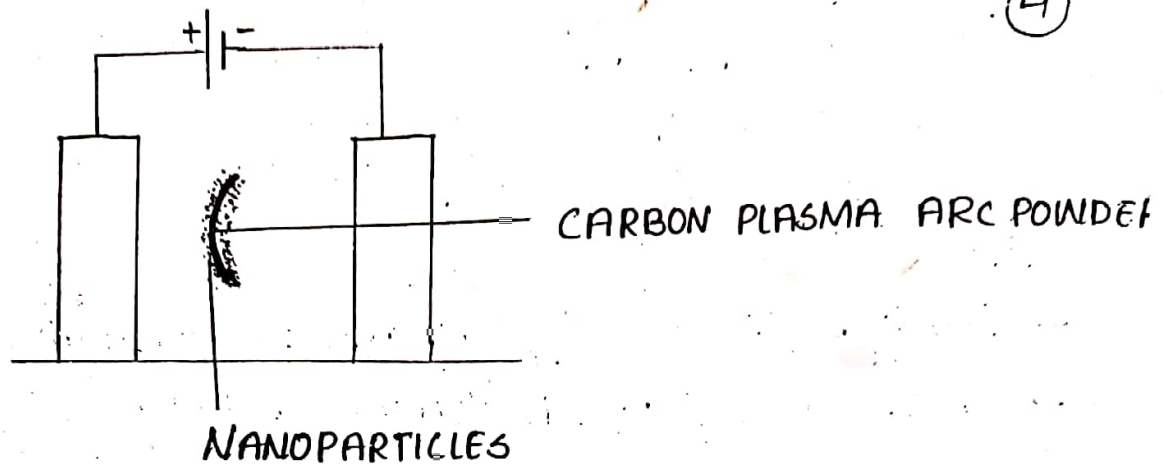 4
+ -
CARBON PLASMA ARC POWDE
NANOPARTICLES